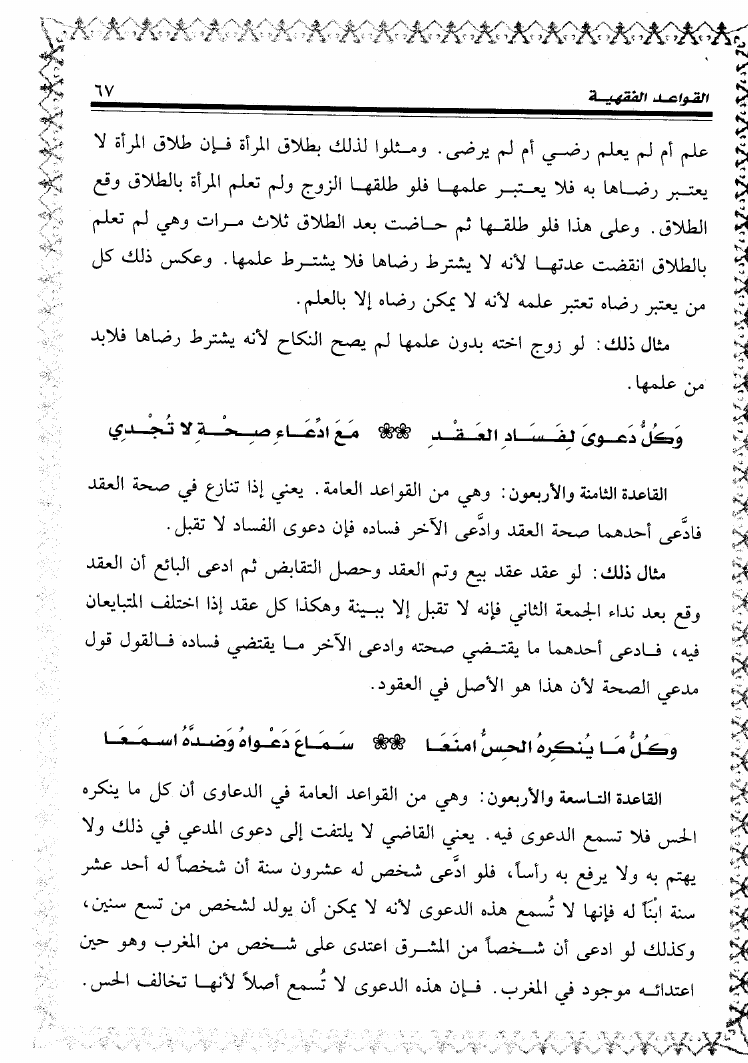 القواعد الفقهية ٦٧
علم أم لم يعلم رضي أم لم يرضى. ومثلوا لذلك بطلاق المرأة فإن طلاق المرأة لا
يعتبر رضاها به فلا يعتبر علمها فلو طلقها الزوج ولم تعلم المرأة بالطلاق وقع
الطلاق. وعلى هذا فلو طلقها ثم حاضت بعد الطلاق ثلاث مرات وهي لم تعلم
بالطلاق انقضت عدتها لأنه لا يشترط رضاها فلا يشترط علمها. وعكس ذلك كل
من يعتبر رضاه تعتبر علمه لأنه لا يمكن رضاه إلا بالعلم.
مثال ذلك: لو زوج اخته بدون علمها لم يصح النكاح لأنه يشترط رضاها فلابد
من علمها.
وَكلُّ دَعـوىَ لِفَسَـادِ العَـقْـدِ ❀❀ مَعَ ادِّعَـاءِ صِـحْـةِ لا تُجْـدِي
القاعدة الثامنة والأربعون: وهي من القواعد العامة. يعني إذا تنازع في صحة العقد
فادَّعى أحدهما صحة العقد وادَّعى الآخر فساده فإن دعوى الفساد لا تقبل.
مثال ذلك: لو عقد عقد بيع وتم العقد وحصل التقابض ثم ادعى البائع أن العقد
وقع بعد نداء الجمعة الثاني فإنه لا تقبل إلا ببينة وهكذا كل عقد إذا اختلف المتبايعان
فيه، فادعى أحدهما ما يقتضي صحته وادعى الآخر ما يقتضي فساده فالقول قول
مدعي الصحة لأن هذا هو الأصل في العقود.
وكلُّ مَـا يُنـكِرهُ الحسُّ امنَعَـا ❀❀ سَمَـاعَ دَعْـواهُ وَضـدَّهُ اسـمَـعَـا
القاعدة التاسعة والأربعون: وهي من القواعد العامة في الدعاوى أن كل ما ينكره
الحس فلا تسمع الدعوى فيه. يعني القاضي لا يلتفت إلى دعوى المدعي في ذلك ولا
يهتم به ولا يرفع به رأساً، فلو ادَّعى شخص له عشرون سنة أن شخصاً له أحد عشر
سنة ابناً له فإنها لا تُسمع هذه الدعوى لأنه لا يمكن أن يولد لشخص من تسع سنين،
وكذلك لو ادعى أن شخصاً من المشرق اعتدى على شخص من المغرب وهو حين
اعتدائه موجود في المغرب. فإن هذه الدعوى لا تُسمع أصلاً لأنها تخالف الحس.